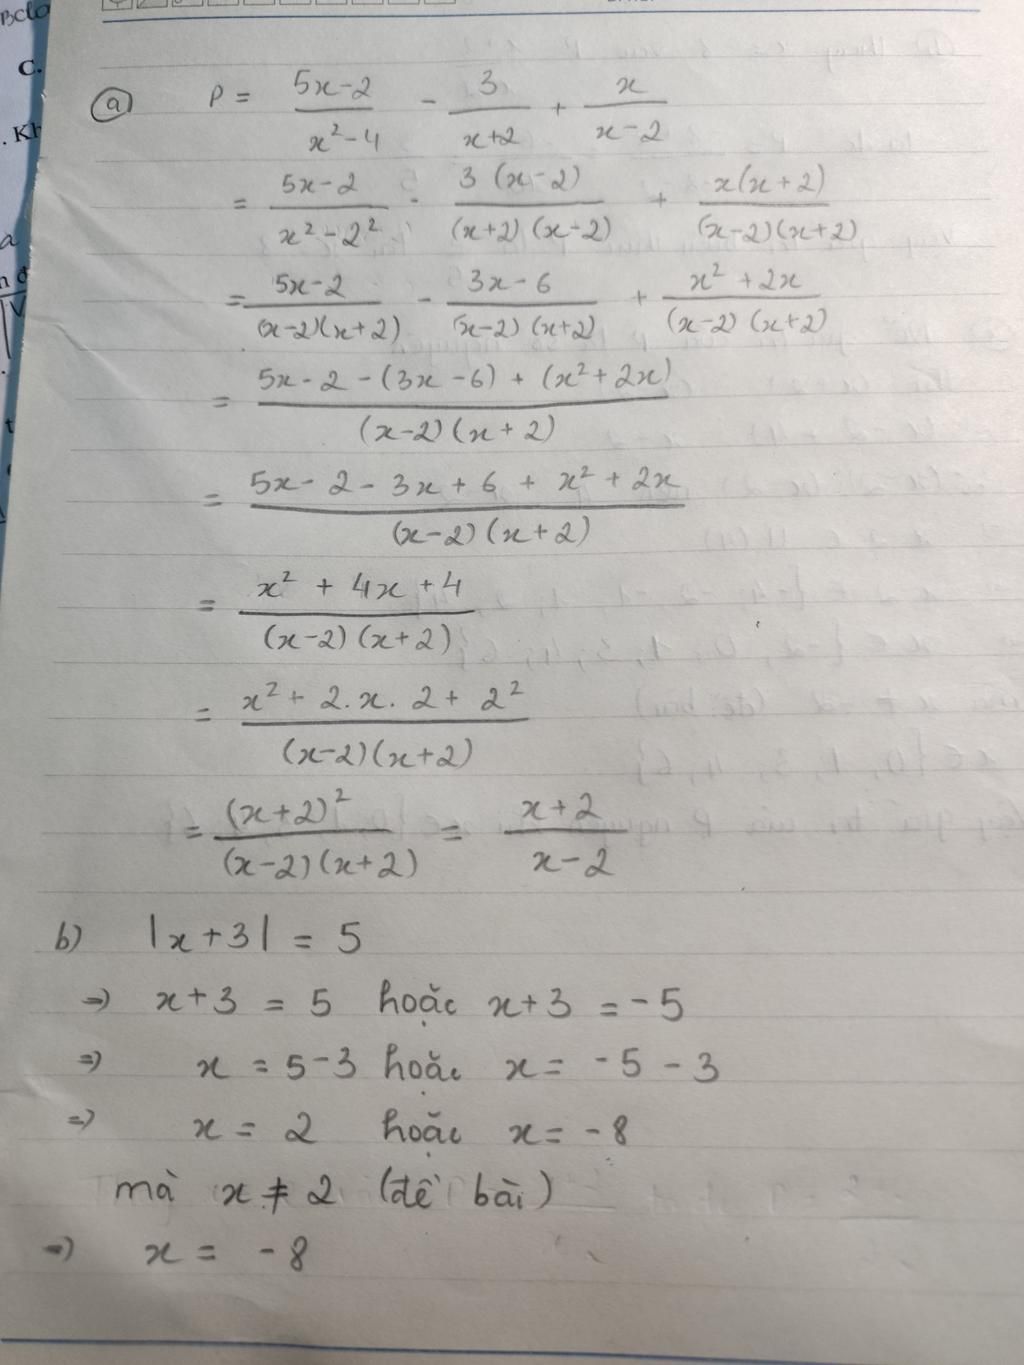 BCLO
C.
. Kh
(a) P = (5x-2)/(x²-4) - 3/(x+2) + x/(x-2)
= (5x-2)/(x²-2²) - 3(x-2)/((x+2)(x-2)) + x(x+2)/((x-2)(x+2))
= (5x-2)/((x-2)(x+2)) - (3x-6)/((x-2)(x+2)) + (x²+2x)/((x-2)(x+2))
= (5x-2-(3x-6)+(x²+2x))/((x-2)(x+2))
= (5x-2-3x+6+x²+2x)/((x-2)(x+2))
= (x²+4x+4)/((x-2)(x+2))
= (x²+2.x.2+2²)/((x-2)(x+2))
= (x+2)²/((x-2)(x+2)) = (x+2)/(x-2)
b) |x+3| = 5
=> x+3 = 5 hoặc x+3 = -5
=> x = 5-3 hoặc x = -5-3
=> x = 2 hoặc x = -8
mà x ≠ 2 (đề bài)
=> x = -8